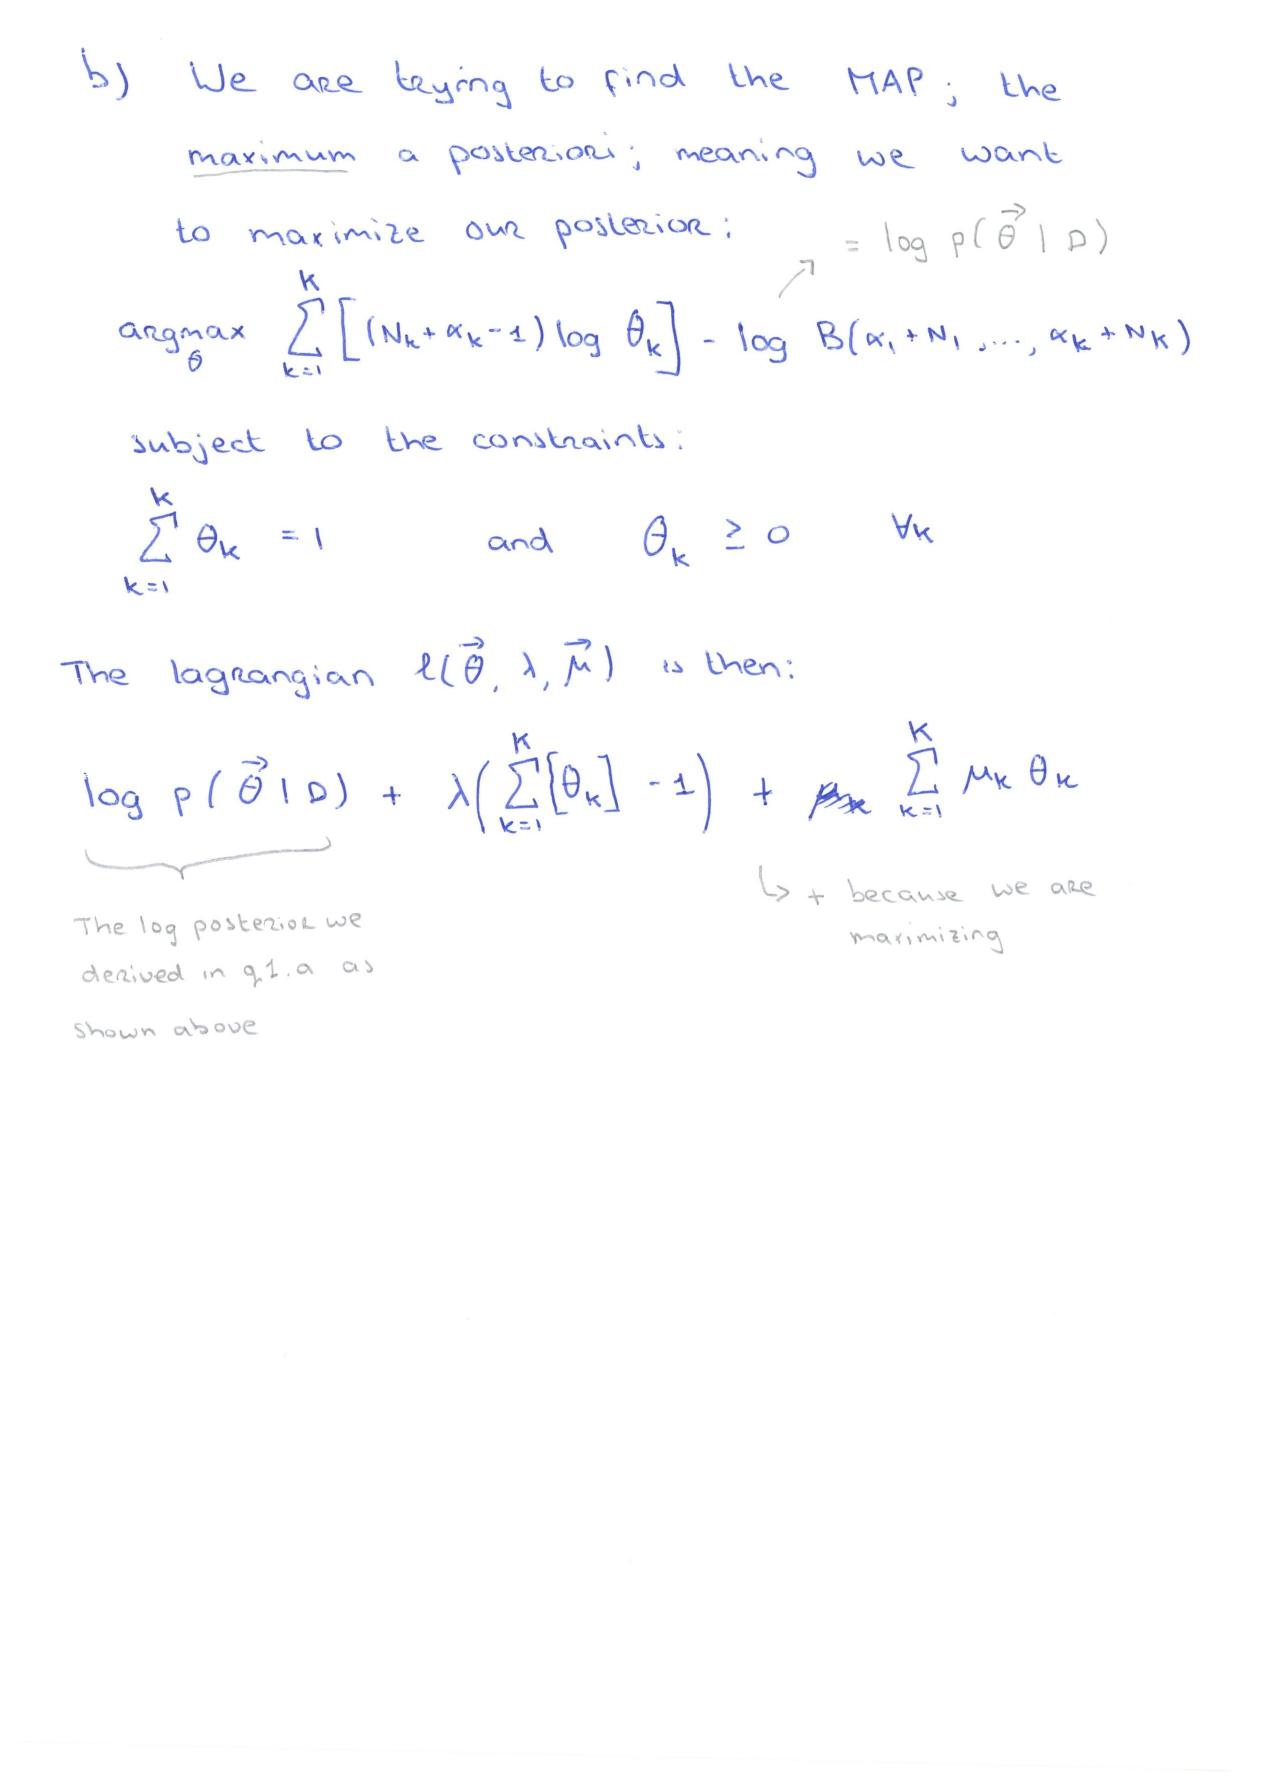 b) We are trying to find the MAP; the
maximum a posteriori; meaning we want
to maximize our posterior:
= log p(θ⃗ | D)
argmax_θ ∑_{k=1}^{K} [(N_k + α_k - 1) log θ_k] - log B(α_1 + N_1, ..., α_K + N_K)
subject to the constraints:
∑_{k=1}^{K} θ_k = 1 and θ_k ≥ 0 ∀k
The lagrangian ℓ(θ⃗, λ, μ⃗) is then:
log p(θ⃗ | D) + λ(∑_{k=1}^{K} [θ_k] - 1) + ∑_{k=1}^{K} μ_k θ_k
↳ + because we are
maximizing
The log posterior we
derived in q1.a as
shown above